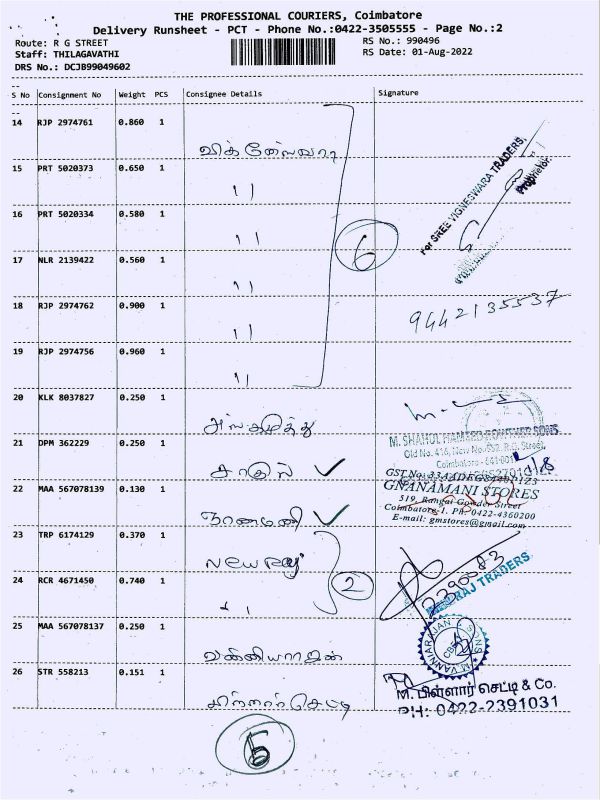 THE PROFESSIONAL COURIERS, Coimbatore
Delivery Runsheet - PCT - Phone No.:0422-3505555 - Page No.:2
Route: R G STREET
RS No.: 990496
Staff: THILAGAVATHI
RS Date: 01-Aug-2022
DRS No.: DCJB99049602
S No Consignment No Weight PCS Consignee Details Signature
14 RJP 2974761 0.860 1
15 PRT 5020373 0.650 1 ''
16 PRT 5020334 0.580 1 ''
For SREE VIGNESWARA TRADERS,
Proprietor.
6
17 NLR 2139422 0.560 1 ''
18 RJP 2974762 0.900 1 ''
9442135537
19 RJP 2974756 0.960 1 ''
20 KLK 8037827 0.250 1
21 DPM 362229 0.250 1 சாகுல் ✓
M. SHAHUL HAMEED ROWTHER SONS
Coimbatore - 641 001
22 MAA 567078139 0.130 1 ஞானமணி ✓
GNANAMANI STORES
519, Rangai Gowder Street
Coimbatore-1. Ph: 0422-4360200
E-mail: gmstores@gmail.com
23 TRP 6174129 0.370 1
24 RCR 4671450 0.740 1 ''
2
RAJ TRADERS
25 MAA 567078137 0.250 1 வன்னியராஜன்
26 STR 558213 0.151 1
M. பிள்ளார் செட்டி & Co.
PH: 0422-2391031
5